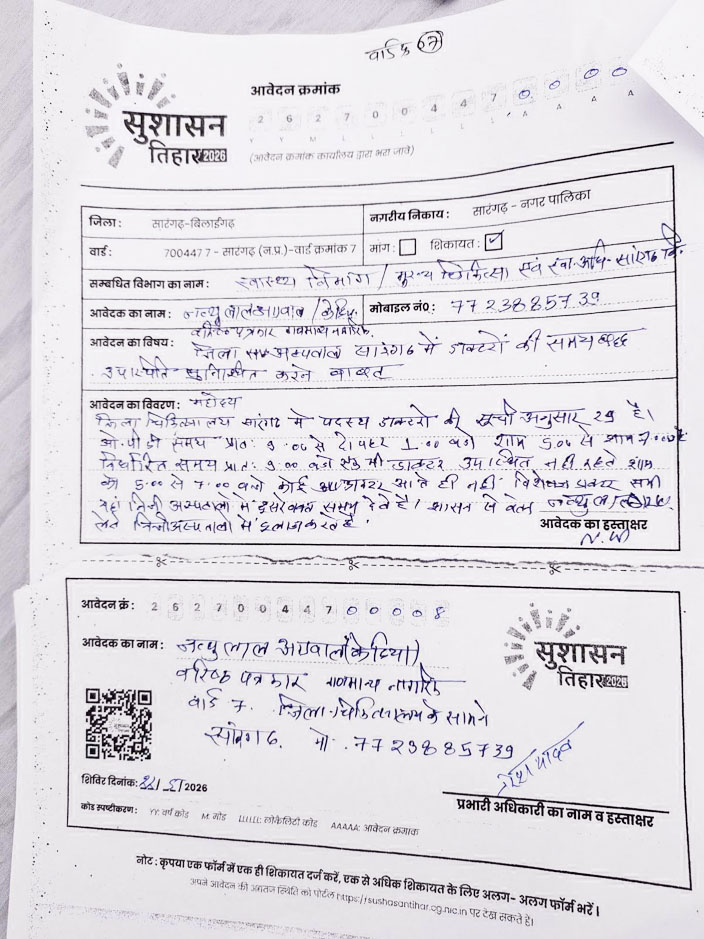 वार्ड क्र 07
आवेदन क्रमांक
2 6 2 7 0 0 4 4 7 0 0 0 0
Y Y M L L L L L A A A A
(आवेदन क्रमांक कार्यालय द्वारा भरा जावे)
सुशासन
तिहार 2026
जिला : सारंगढ़-बिलाईगढ़
नगरीय निकाय : सारंगढ़ - नगर पालिका
वार्ड : 7004477 - सारंगढ़ (न.प.)-वार्ड क्रमांक 7
मांग : शिकायत : ✓
सम्बधित विभाग का नाम : स्वास्थ्य विभाग / मुख्य चिकित्सा एवं स्वा. अधि. सारंगढ़ बि.
आवेदक का नाम : नत्थुलाल अग्रवाल / केडिया
मोबाइल नं० : 7723885739
वरिष्ठ पत्रकार गणमान्य नागरिक
आवेदन का विषय : जिला अस्पताल सारंगढ़ में डाक्टरों की समयबद्ध
उपस्थिति सुनिश्चित करने बाबत
आवेदन का विवरण : महोदय
जिला चिकित्सालय सारंगढ़ में पदस्थ डाक्टरों की सूची अनुसार 29 है।
ओ.पी.डी समय प्रात: 9.00 से दोपहर 1.00 बजे शाम 5.00 से शाम 7.00 है
निर्धारित समय प्रात: 9.00 बजे एक भी डाक्टर उपस्थित नहीं रहते शाम
को 5.00 से 7.00 बजे कोई डाक्टर आते ही नहीं विशेषज्ञ डाक्टर सभी
यहां निजी अस्पतालों में समय देते है। शासन से वेतन
लेते निजी अस्पतालो में इलाज करते है।
नत्थुलाल
आवेदक का हस्ताक्षर
आवेदन क्रं : 2 6 2 7 0 0 4 4 7 0 0 0 0 8
आवेदक का नाम : नत्थुलाल अग्रवाल (केडिया)
वरिष्ठ पत्रकार गणमान्य नागरिक
वार्ड 7. जिला चिकित्सालय के सामने
सारंगढ़ मो. 7723885739
सुशासन
तिहार 2026
शिविर दिनांक: 2026
प्रभारी अधिकारी का नाम व हस्ताक्षर
कोड स्पष्टीकरण : YY: वर्ष कोड M: मोड LLLLL: लोकेलिटी कोड AAAAA: आवेदन क्रमांक
नोट : कृपया एक फॉर्म में एक ही शिकायत दर्ज करें, एक से अधिक शिकायत के लिए अलग- अलग फॉर्म भरें ।
अपने आवेदन की अद्यतन स्थिति को पोर्टल https://sushasantihar.cg.nic.in पर देख सकते है।